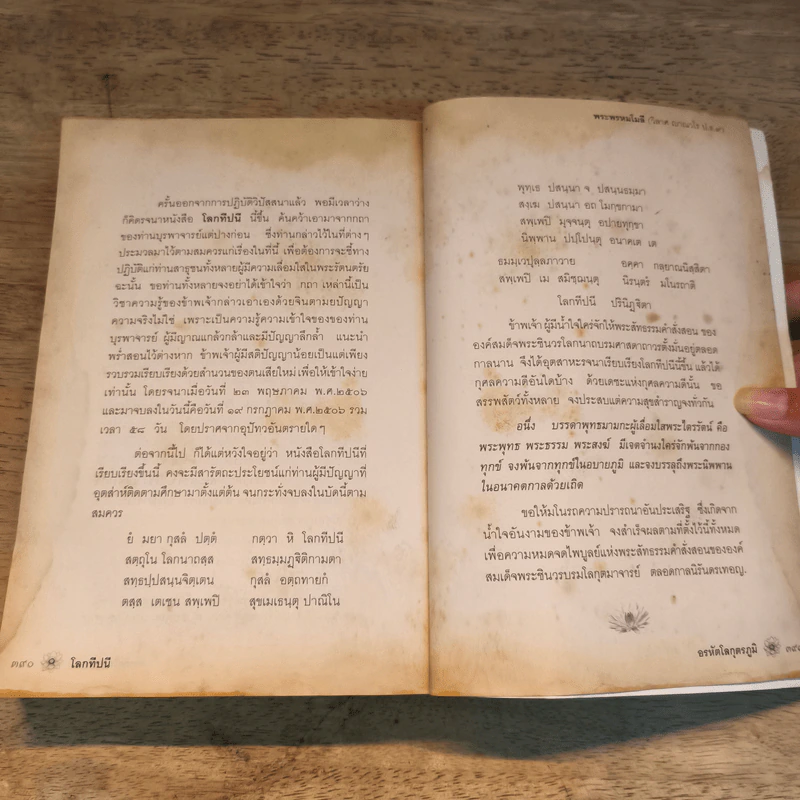 ครั้นออกจากการปฏิบัติวิปัสสนาแล้ว พอมีเวลาว่าง
ก็คิดรจนาหนังสือ โลกทีปนี นี้ขึ้น ค้นคว้าเอามาจากกถา
ของท่านบุรพาจารย์แต่ปางก่อน ซึ่งท่านกล่าวไว้ในที่ต่างๆ
ประมวลมาไว้ตามสมควรแก่เรื่องในที่นี้ เพื่อต้องการจะชี้ทาง
ปฏิบัติแก่ท่านสาธุชนทั้งหลายผู้มีความเลื่อมใสในพระรัตนตรัย
ฉะนั้น ขอท่านทั้งหลายจงอย่าได้เข้าใจว่า กถา เหล่านี้เป็น
วิชาความรู้ของข้าพเจ้ากล่าวเอาเองด้วยจินตามยปัญญา
ความจริงไม่ใช่ เพราะเป็นความรู้ความเข้าใจของของท่าน
บุรพาจารย์ ผู้มีญาณแก้วกล้าและมีปัญญาลึกล้ำ แนะนำ
พร่ำสอนไว้ต่างหาก ข้าพเจ้าผู้มีสติปัญญาน้อยเป็นแต่เพียง
รวบรวมเรียบเรียงด้วยสำนวนของตนเสียใหม่เพื่อให้เข้าใจง่าย
เท่านั้น โดยรจนาเมื่อวันที่ ๒๓ พฤษภาคม พ.ศ.๒๕๐๖
และมาจบลงในวันนี้คือวันที่ ๑๙ กรกฎาคม พ.ศ.๒๕๐๖ รวม
เวลา ๕๘ วัน โดยปราศจากอุปัทวอันตรายใดๆ
ต่อจากนี้ไป ก็ได้แต่หวังใจอยู่ว่า หนังสือโลกทีปนีที่
เรียบเรียงขึ้นนี้ คงจะมีสารัตถะประโยชน์แก่ท่านผู้มีปัญญาที่
อุตส่าห์ติดตามศึกษามาตั้งแต่ต้น จนกระทั่งจบลงในบัดนี้ตาม
สมควร
ยํ มยา กุสลํ ปตฺตํ กตฺวา หิ โลกทีปนี
สตฺถุโน โลกนาถสฺส สทฺธมฺมฏฺฐิติกามตา
สทฺธปฺปสนฺนจิตฺเตน กุสลํ อตฺถทายกํ
ตสฺส เตเชน สพฺเพปิ สุขเมเธนฺตุ ปาณิโน
๓๙๐ โลกทีปนี
พระพรหมโมลี (วิลาศ ญาณวโร ป.ธ.๙)
พุทฺเธ ปสนฺนา จ ปสนฺนธมฺมา
สงฺเฆ ปสนฺนา อถ โมกฺขกามา
สพฺเพปิ มุจฺจนฺตุ อปายทุกฺขา
นิพฺพาน ปปฺโปนฺตุ อนาคเต เต
ธมฺมเวปุลฺลภาวาย อคฺคา กลฺยาณนิสฺสิตา
สพฺเพปิ เม สมิชฺฌนฺตุ นิรนฺตรํ มโนรถาติ
โลกทีปนี ปรินิฏฺฐิตา
ข้าพเจ้า ผู้มีน้ำใจใคร่จักให้พระสัทธรรมคำสั่งสอน ของ
องค์สมเด็จพระชินวรโลกนาถบรมศาสดาถาวรตั้งมั่นอยู่ตลอด
กาลนาน จึงได้อุตสาหะรจนาเรียบเรียงโลกทีปนีนี้ขึ้น แล้วได้
กุศลความดีอันใดบ้าง ด้วยเดชะแห่งกุศลความดีนั้น ขอ
สรรพสัตว์ทั้งหลาย จงประสบแต่ความสุขสำราญจงทั่วกัน
อนึ่ง บรรดาพุทธมามกะผู้เลื่อมใสพระไตรรัตน์ คือ
พระพุทธ พระธรรม พระสงฆ์ มีเจตจำนงใคร่จักพ้นจากกอง
ทุกข์ จงพ้นจากทุกข์ในอบายภูมิ และจงบรรลุถึงพระนิพพาน
ในอนาคตกาลด้วยเถิด
ขอให้มโนรถความปรารถนาอันประเสริฐ ซึ่งเกิดจาก
น้ำใจอันงามของข้าพเจ้า จงสำเร็จผลตามที่ตั้งไว้นี้ทั้งหมด
เพื่อความหมดจดไพบูลย์แห่งพระสัทธรรมคำสั่งสอนขององค์
สมเด็จพระชินวรบรมโลกุตมาจารย์ ตลอดกาลนิรันดรเทอญ.
อรหัตโลกุตรภูมิ